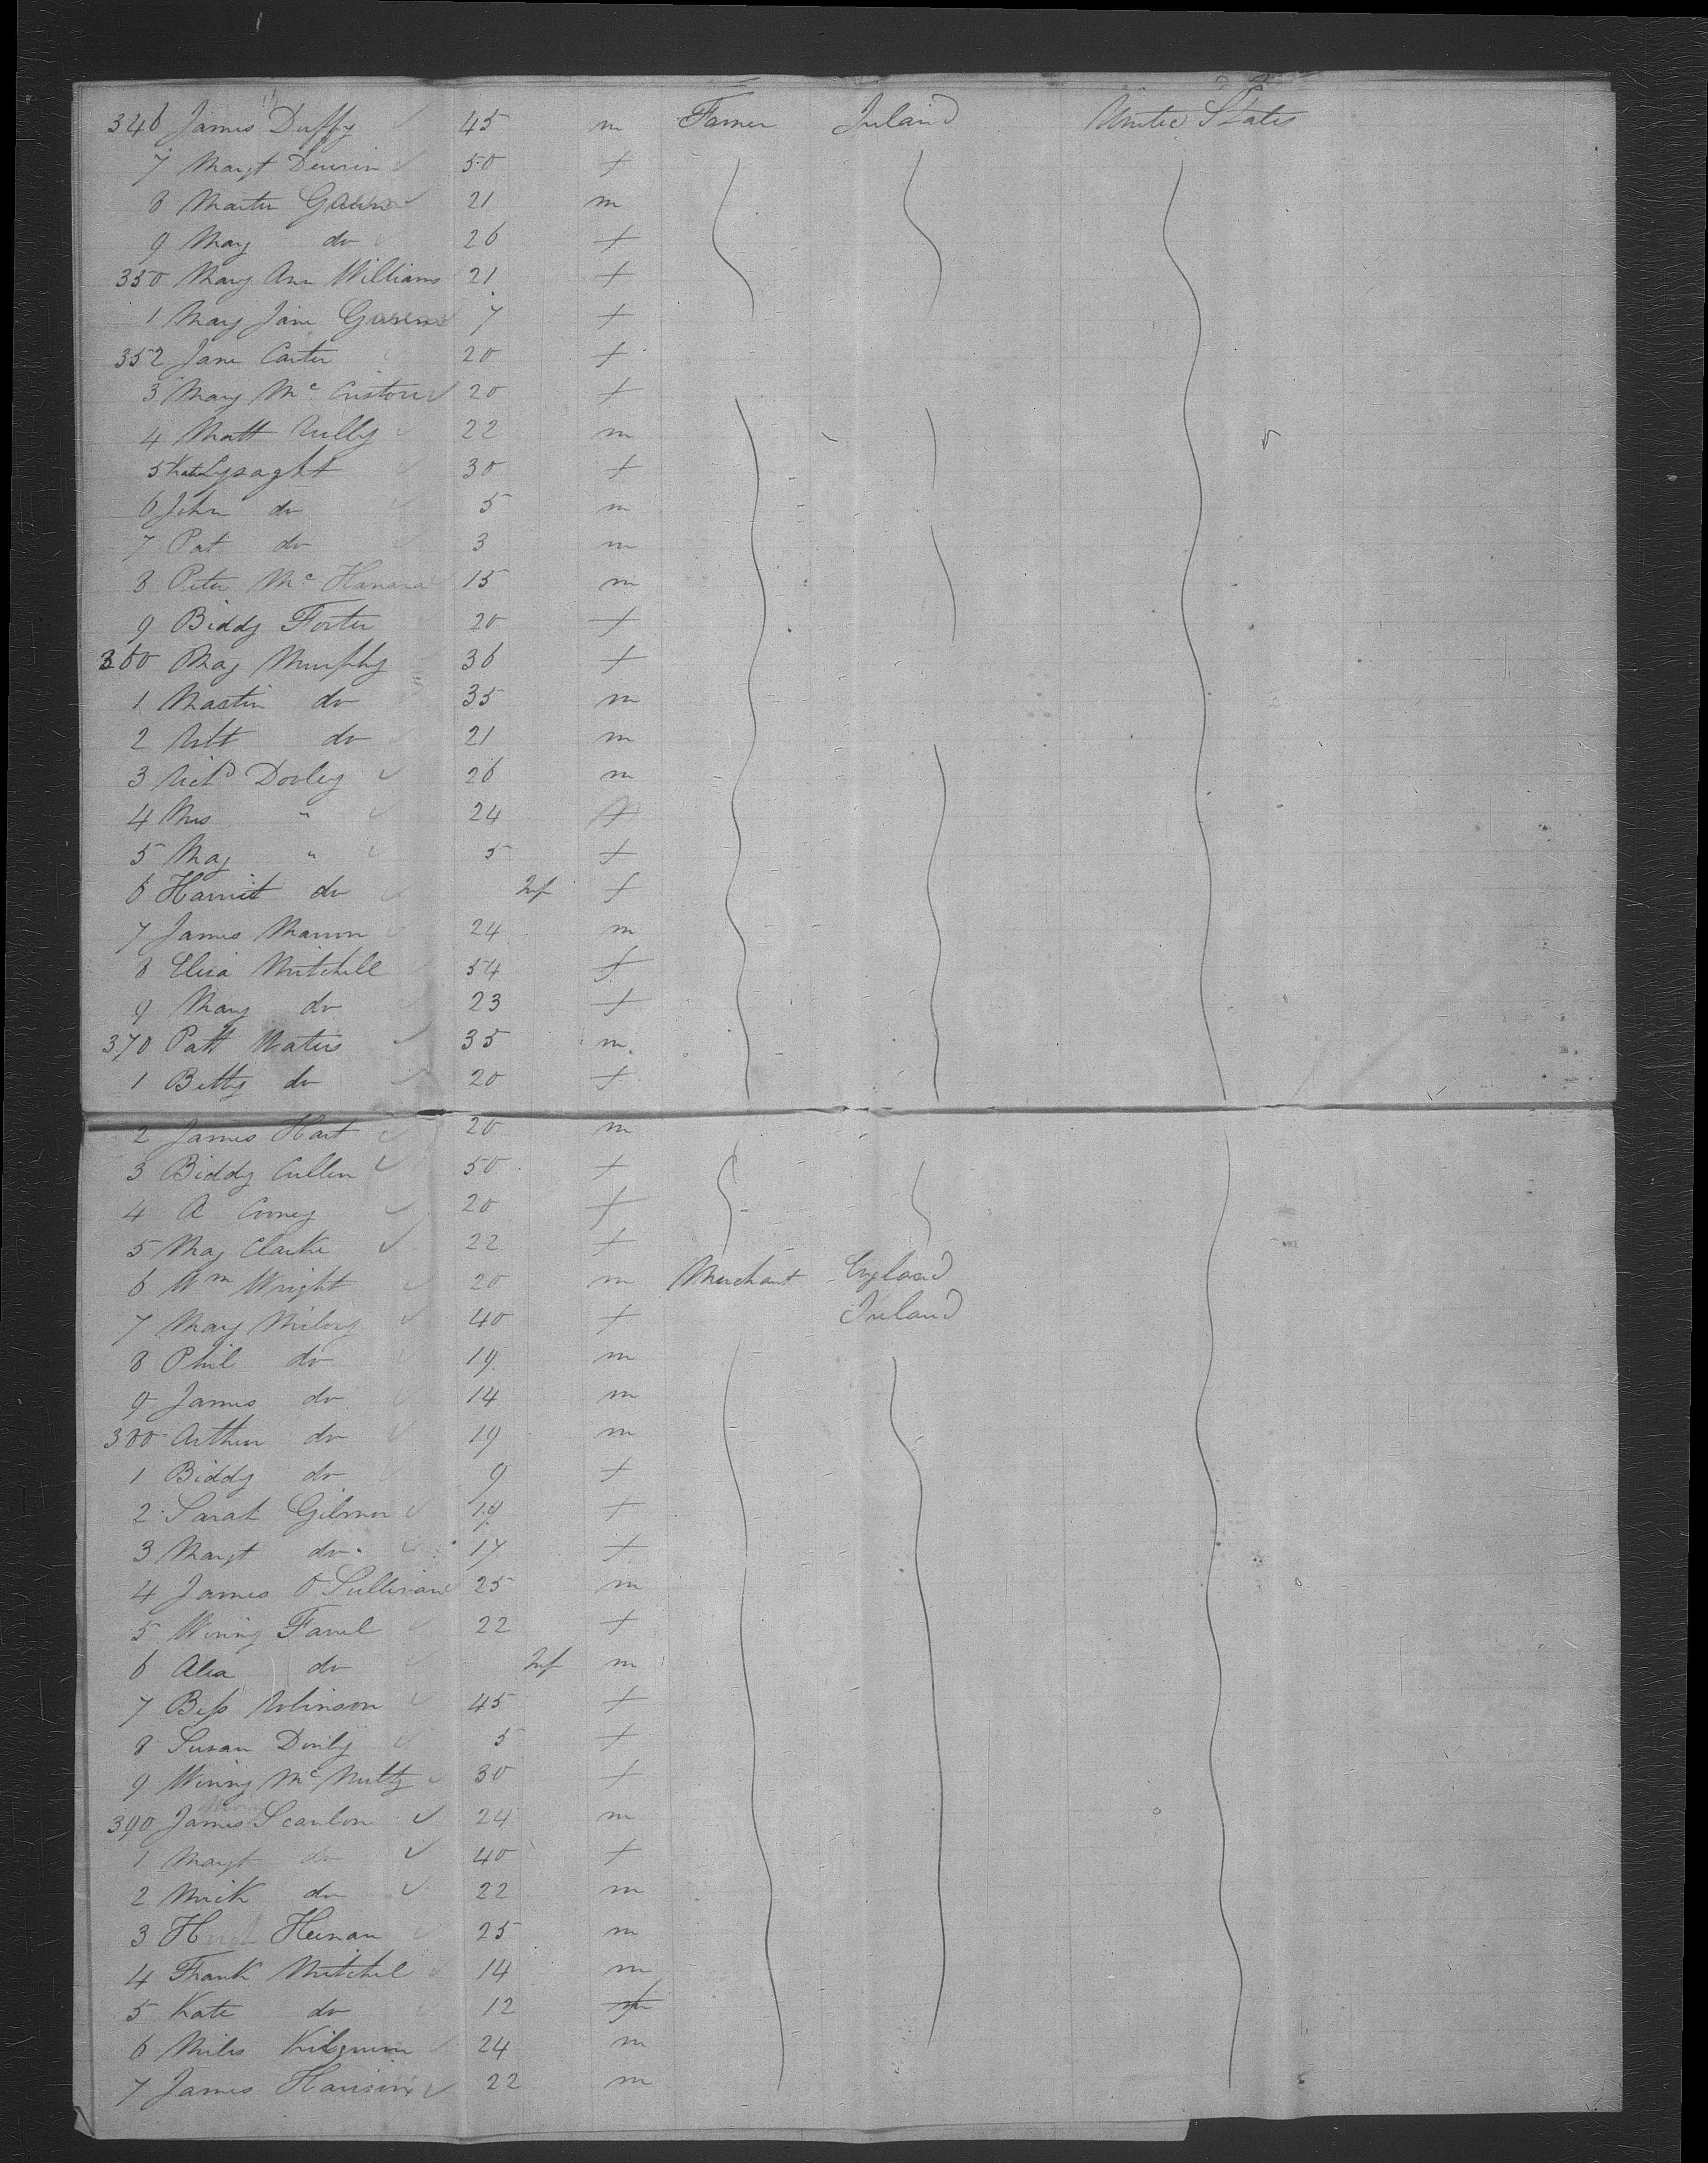 346 James Duffy 45 m Farmer Ireland United States
7 Margt 50 f
8 Martin 21 m
9 Mary do 26 f
350 Mary Ann Williams 21 f
1 Mary Jane 7 f
352 Jane Carter 20 f
3 Mary Mc 20 f
4 Matt Rielly 22 m
5 Kate Lysaght 30 f
6 John do 5 m
7 Pat do 3 m
8 Peter Mc Hanara 15 m
9 Biddy Forter 20 f
360 May Murphy 36 f
1 Martin do 35 m
2 Robt do 21 m
3 Richd Dooley 26 m
4 Mrs " 24 f
5 May " 5 f
6 Harriet do Inf f
7 James Mannon 24 m
8 Eliza Mitchell 54 f
9 Mary do 23 f
370 Patt Waters 35 m
1 Betty do 20 f
2 James Hart 20 m
3 Biddy Cullen 50 f
4 A Cooney 20 f
5 May Clarke 22 f
6 Wm Wright 20 m Merchant England
7 Mary Miloy 40 f Ireland
8 Phil do 19 m
9 James do 14 m
380 Arthur do 19 m
1 Biddy do 9 f
2 Sarah Gilmor 19 f
3 Margt do 17 f
4 James O Sullivan 25 m
5 Winny Farrel 22 f
6 do Inf m
7 Bess Robinson 45 f
8 Susan Doily 5 f
9 Winny Mc Nulty 30 f
390 James Scanlon 24 m
1 Margt do 40 f
2 Mick do 22 m
3 Heenan 25 m
4 Frank Mitchel 14 m
5 Kate do 12 f
6 Miles 24 m
7 James 22 m